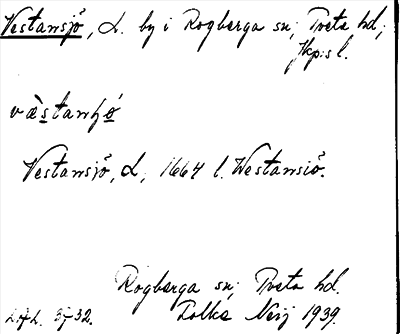 Vestansjö, d. by i Rogberga sn; Tveta hd;
Jkp:s l.
væ̀stanʃó
Vestansjö, d, 1664 l. Westansiö.
Rogberga sn; Tveta hd.
Tolke Neij 1939.